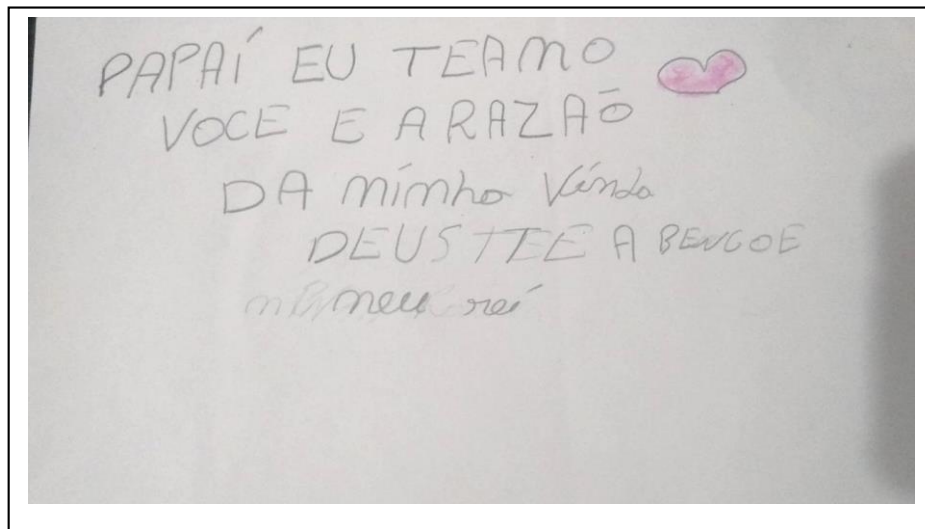 PAPAÍ EU TEAMO
VOCE E A RAZAÕ
DA minho Vinda
DEUS TEE A BENCOE
meu rei